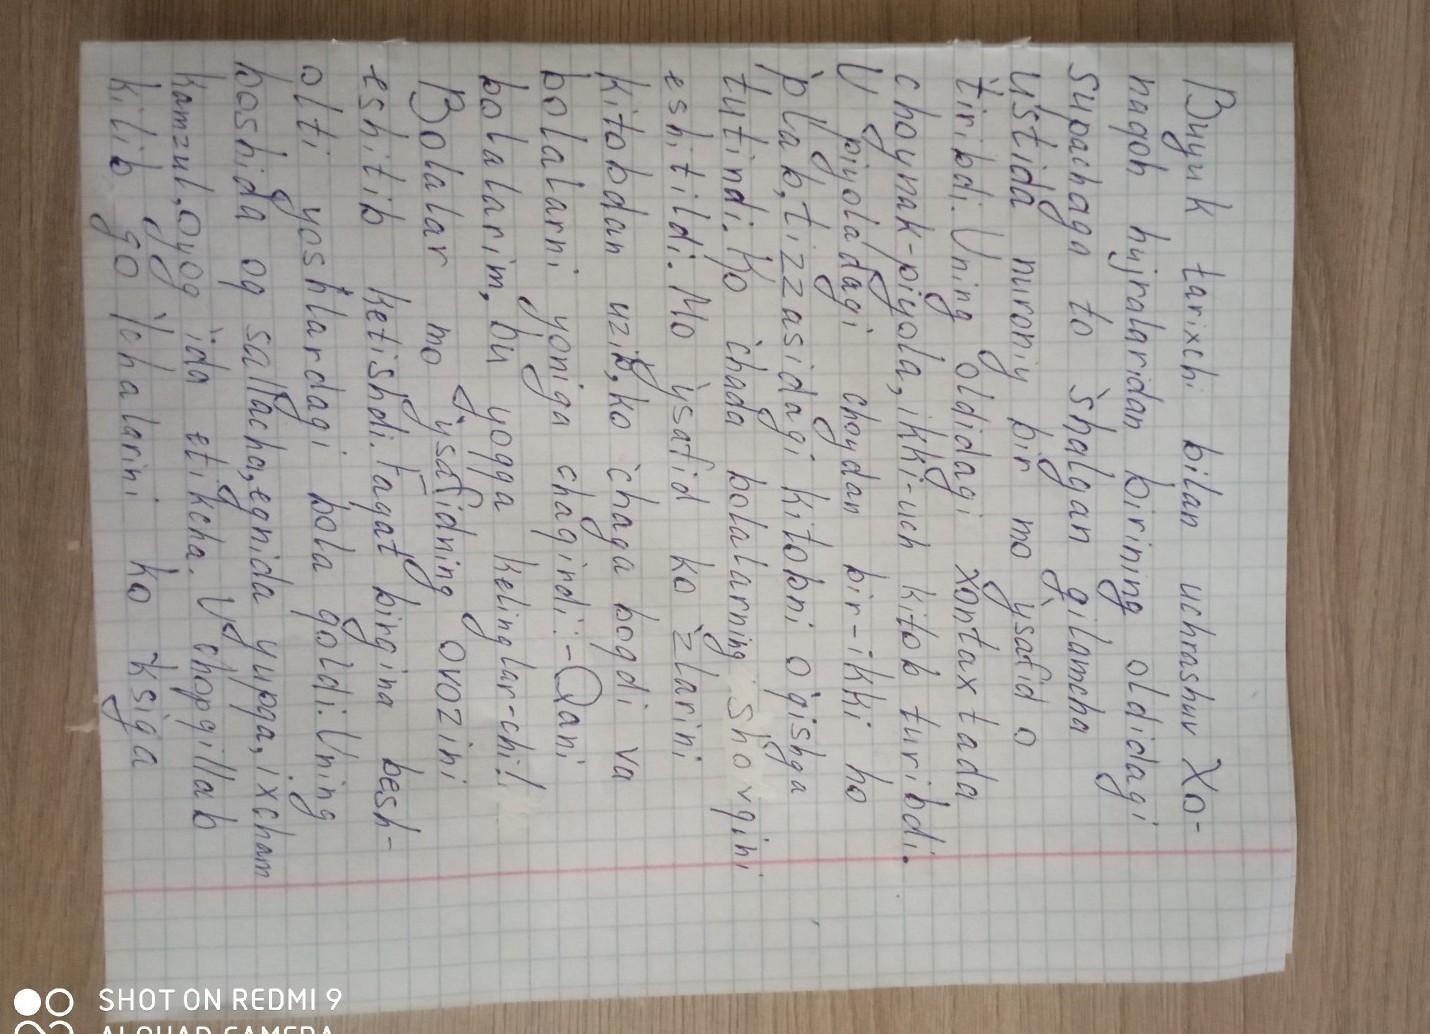 Buyuk tarixchi bilan uchrashuv Xo-
naqoh hujralaridan birining oldidagi
supachaga to'shalgan gilamcha
ustida nuroniy bir mo'ysafid o
'tiribdi. Uning oldidagi xontaxtada
choynak-piyola, ikki-uch kitob turibdi.
U piyoladagi choydan bir-ikki ho
'plab, tizzasidagi kitobni o'qishga
tutindi. Ko'chada bolalarning shovqini
eshitildi. Mo'ysafid ko'zlarini
kitobdan uzib, ko'chaga boqdi va
bolalarni yoniga chaqirdi: -Qani
bolalarim, bu yoqqa kelinglar-chi!
Bolalar mo'ysafidning ovozini
eshitib ketishdi. Faqat birgina besh-
olti yoshlardagi bola qoldi. Uning
boshida oq sallacha, egnida yupqa, ixcham
kamzul, oyog'ida etikcha. U chopqillab
kilib qo'lchalarini ko'ksiga
SHOT ON REDMI 9
AI QUAD CAMERA